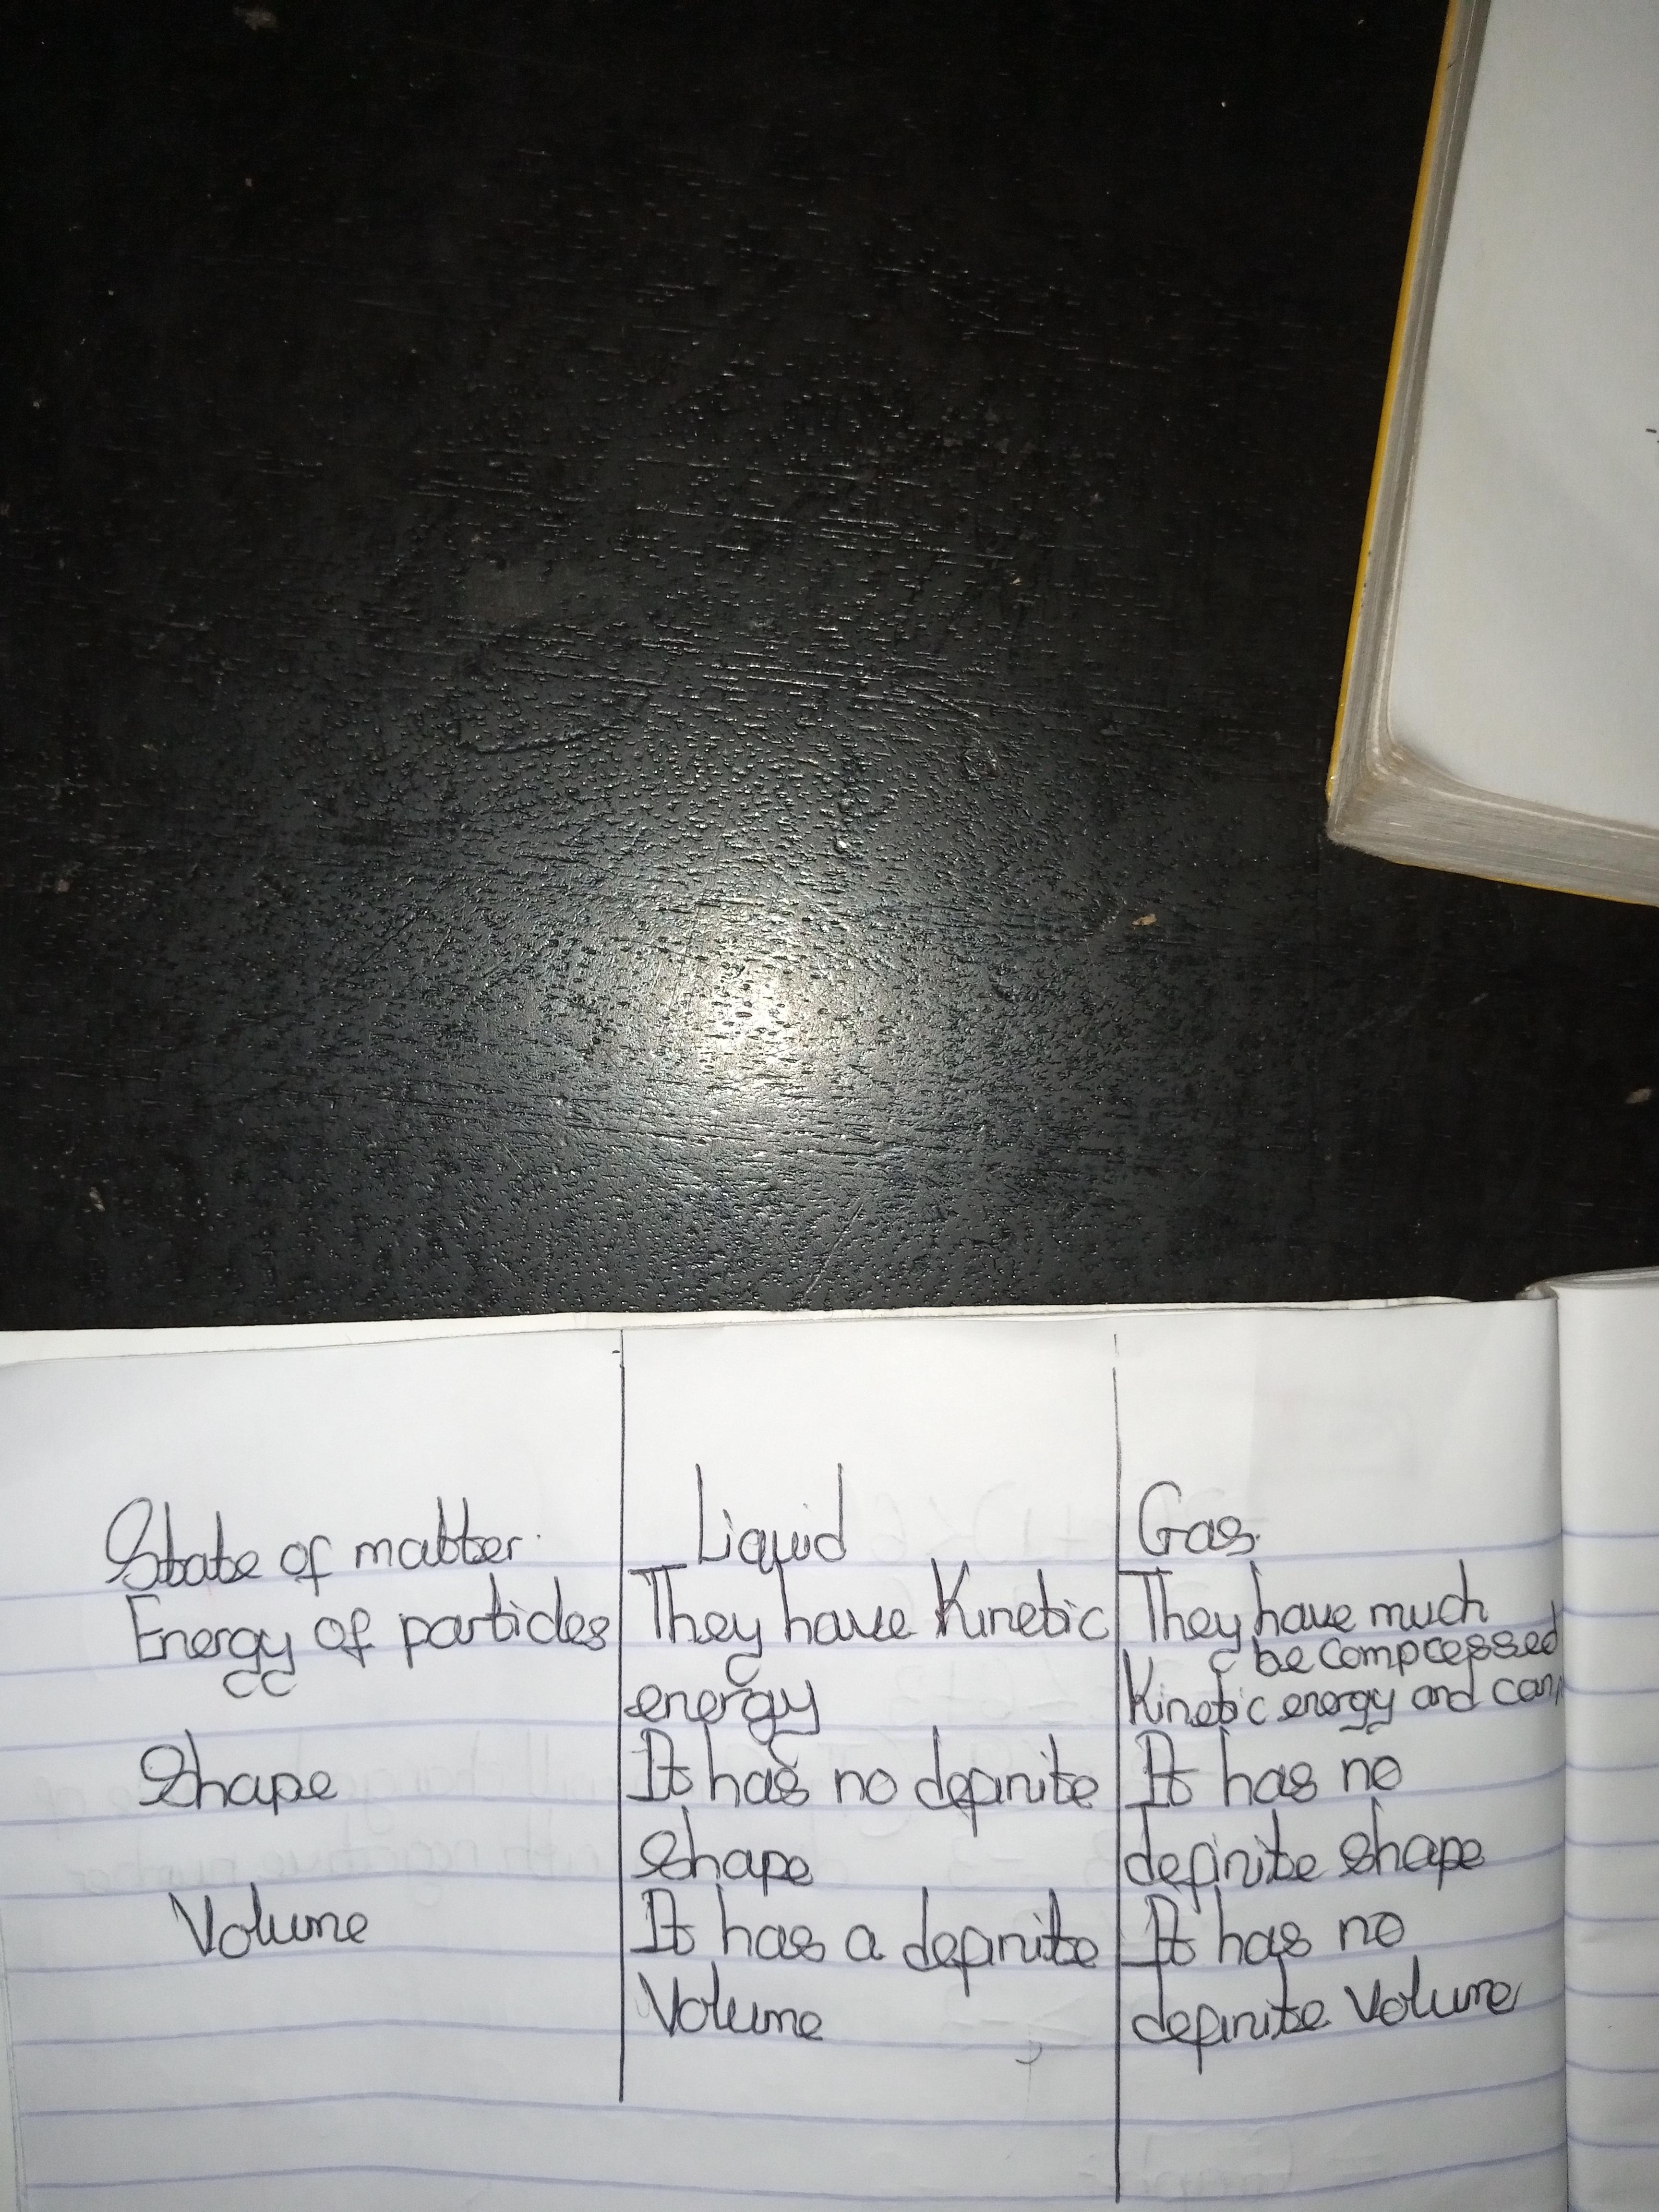 State of matter. Liquid Gas.
Energy of particles They have Kinetic They have much
be compressed
energy Kinetic energy and can
Shape It has no definite It has no
shape definite shape
Volume It has a definite It has no
Volume definite Volume